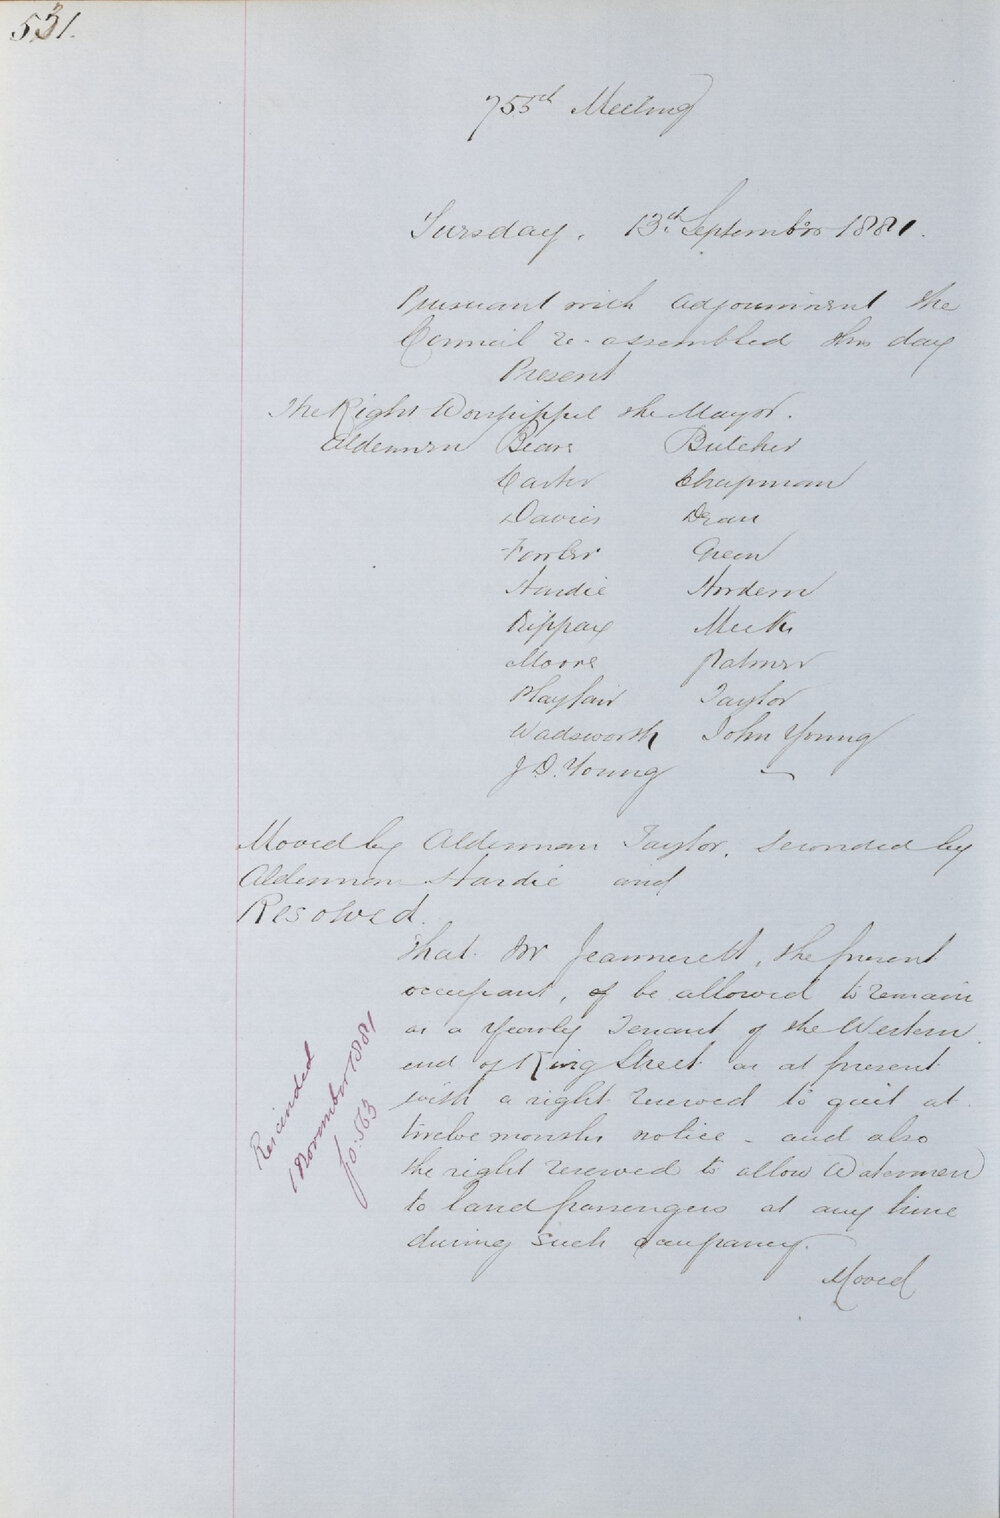 531.
755th Meeting
Tuesday, 13th September 1881.
Pursuant with adjournment the
Council re-assembled this day
Present
The Right Worshipful the Mayor.
Aldermen Beare Butcher
Carter Chapman
Davies Dean
Fowler Green
Hardie Hordern
Kippax Meeks
Moore Palmer
Playfair Taylor
Wadsworth John Young
J D. Young
Moved by Alderman Taylor, seconded by
Alderman Hardie and
Resolved.
That Mr Jeannerett, the present
occupant, of be allowed to remain
as a yearly Tenant of the Western
end of King Street as at present
with a right reserved to quit at
twelve months notice - and also
the right reserved to allow Watermen
to land passengers at any time
during such occupancy.
Rescinded
1 November 1881
fo. 563
Moved